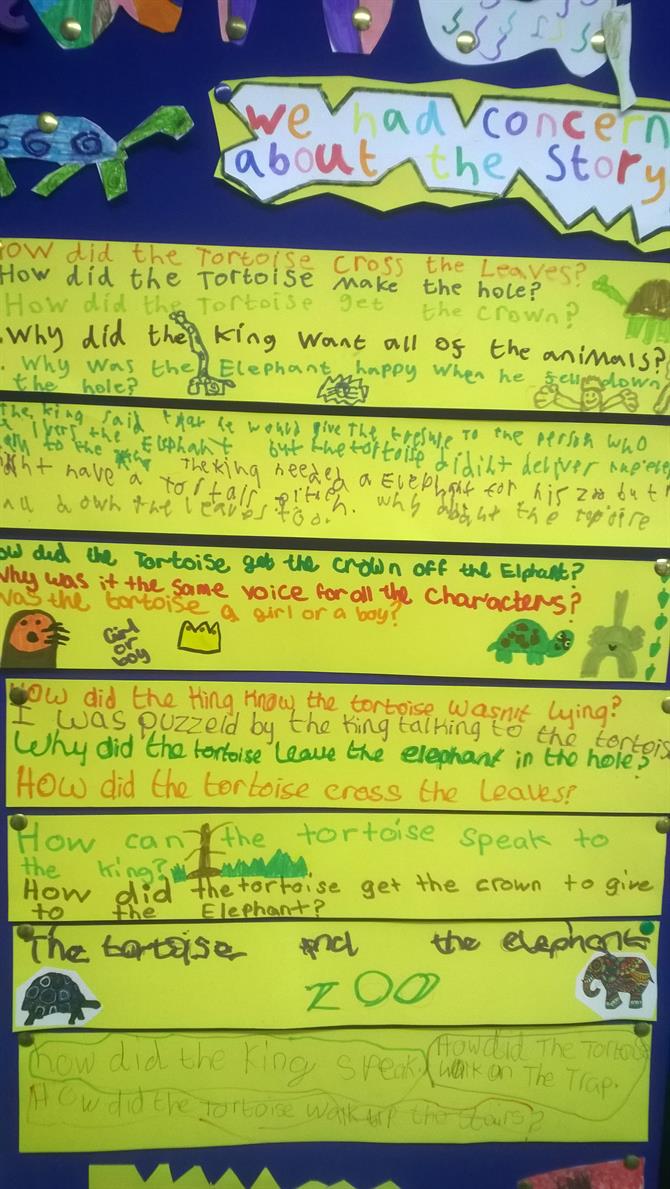 we had concern
about the Story
How did the Tortoise cross the Leaves?
How did the Tortoise make the hole?
How did the Tortoise get the crown?
.Why did the King want all of the animals?
. Why was the Elephant happy when he fell down
the hole?
the king said that he would give the tresure to the person who
the Elephant but the tortoise didiht deliver
have a The king needed a Elephant for his zoo but
down the leaves too. why
How did the Tortoise get the crown off the Elphant?
Why was it the same voice for all the characters?
was the tortoise a girl or a boy?
How did the King Know the tortoise wasnit lying?
I was puzzeld by the King talking to the tortoise
Why did the tortoise leave the elephant in the hole?
HOW did the tortoise cross the Leaves?
How can the tortoise speak to
the king?
How did the tortoise get the crown to give
to the Elephant?
The tortoise and the elephant
ZOO
how did the King speak.
How did The Tortoise
walk on The Trap.
How did the tortoise walk up the stairs?